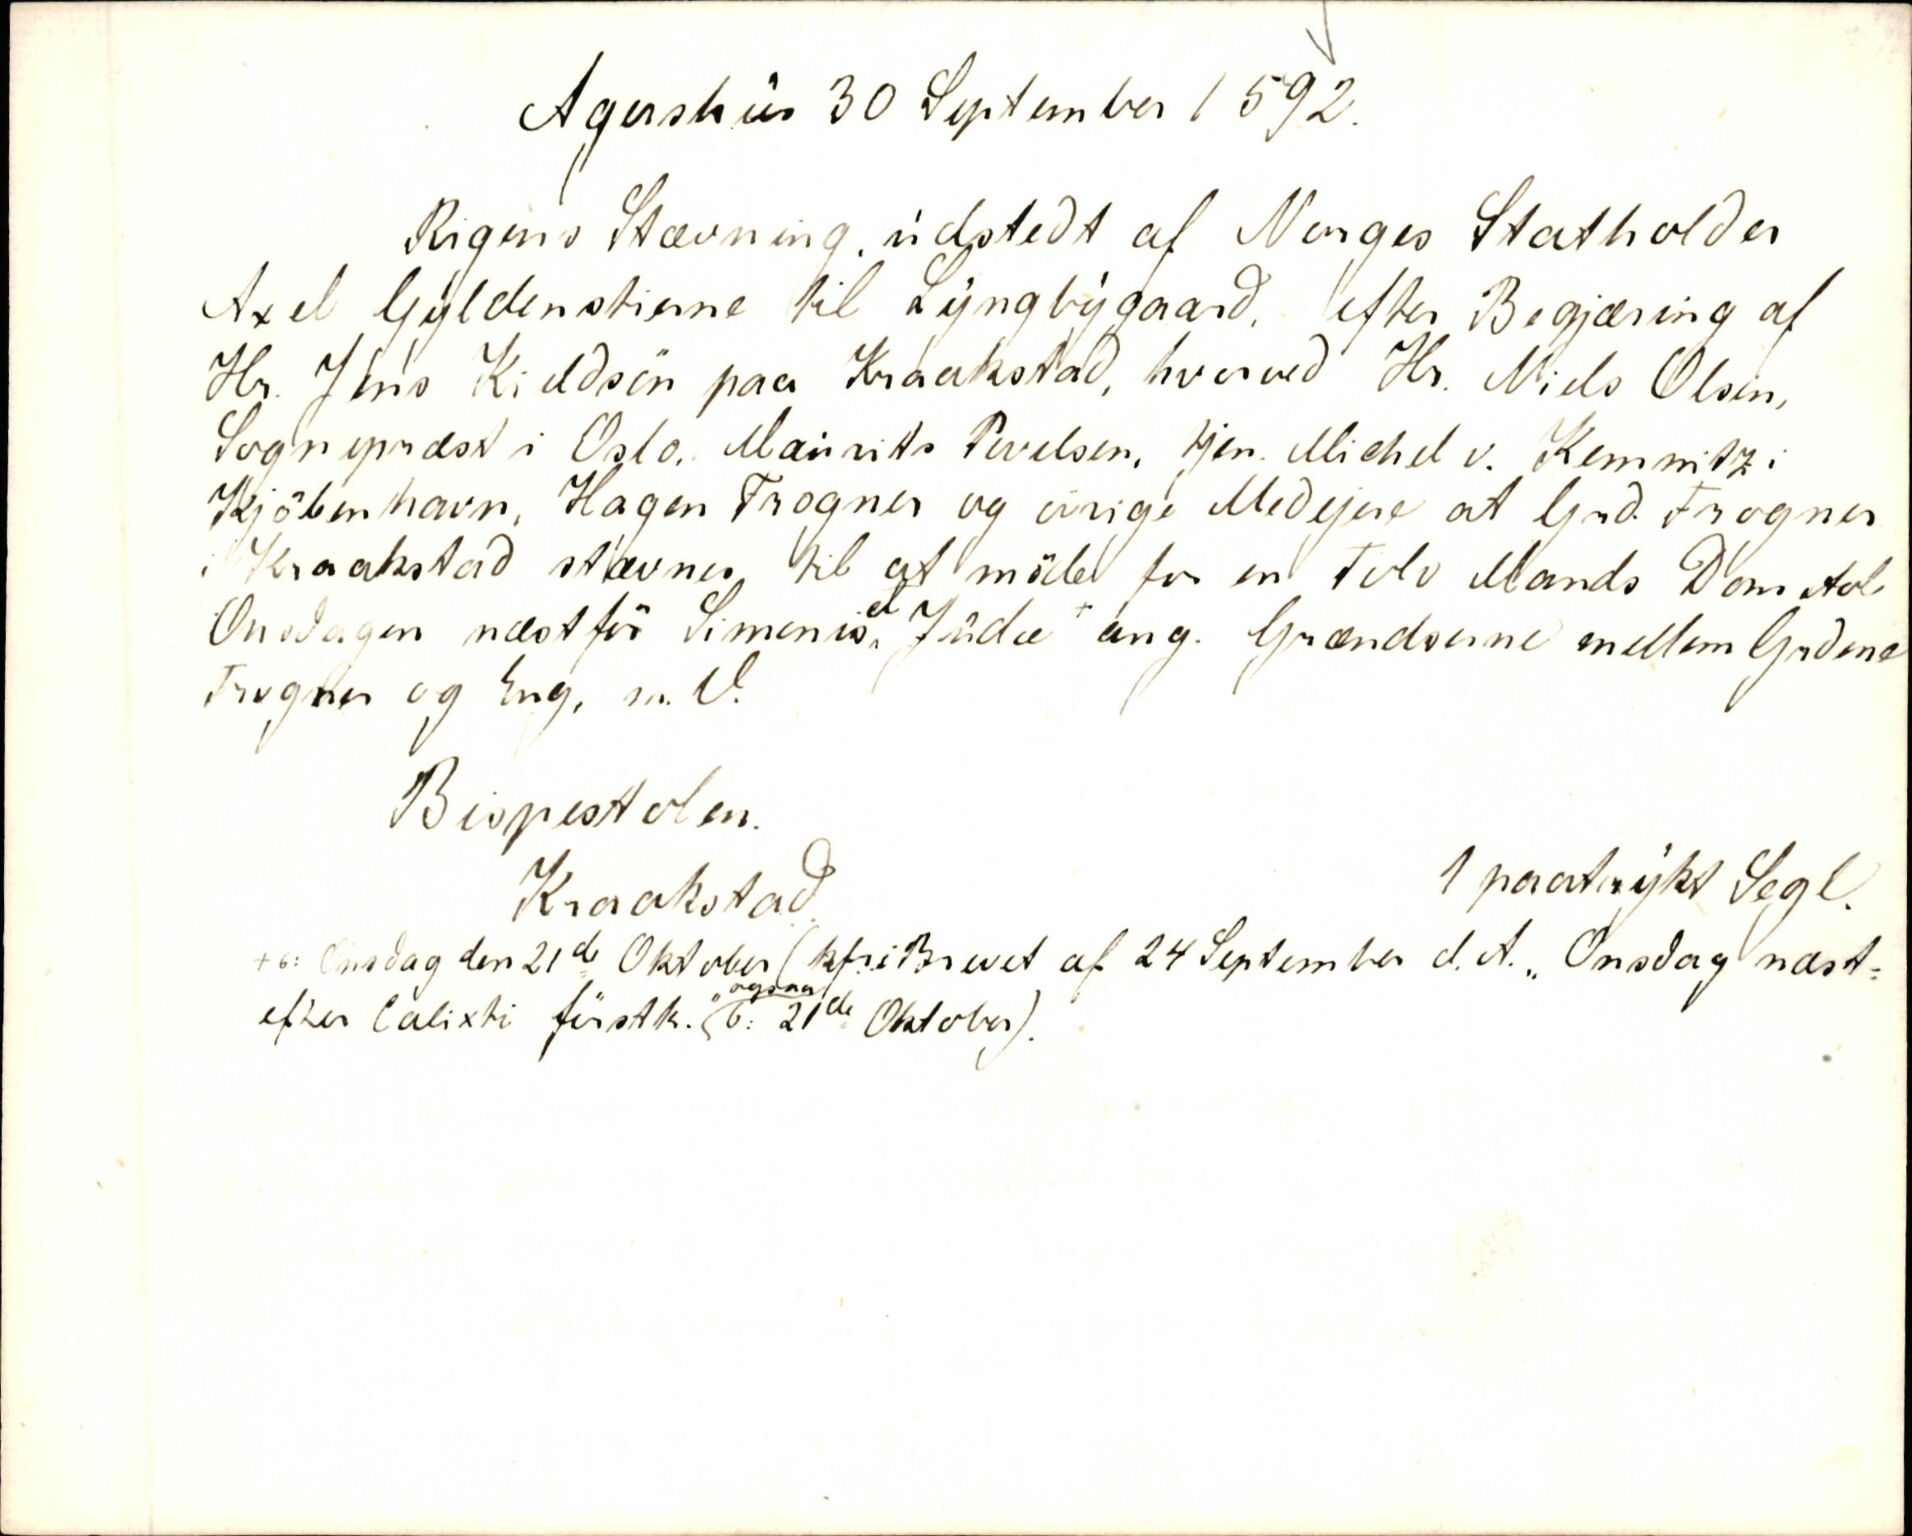 Agershus 30 September 1592.
Rigens Stævning, udstedt af Norges Statholder
Axel Gyldenstierne til Lyngbygaard, efter Begjæring af
Hr. Jens Kieldsön paa Kraakstad, hvorved Hr. Niels Olsen,
Sognepræst i Oslo, Maurits Povelsen, tjen. Michel v. Kemnitz i
Kjöbenhavn, Hagen Frogner og övrige Medejere at Grd. Frogner
i Kraakstad stævnes til at möde for en Tolv Mands Dom
Onsdagen næst för Simonis et Judæ + ang. Grændserne mellem Grdene
Frogner og Eng, m. V.
Bispestolen.
Kraakstad.
1 paatrykt Segl.
+ ɔ: Onsdag den 21de Oktober (kfr. Brevet af 24 September d. A. „Onsdag næst-
efter Calixti förstk." ogsaa ɔ: 21de Oktober).